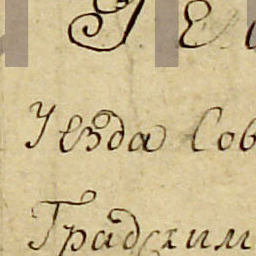 Уезда Сов
Градским